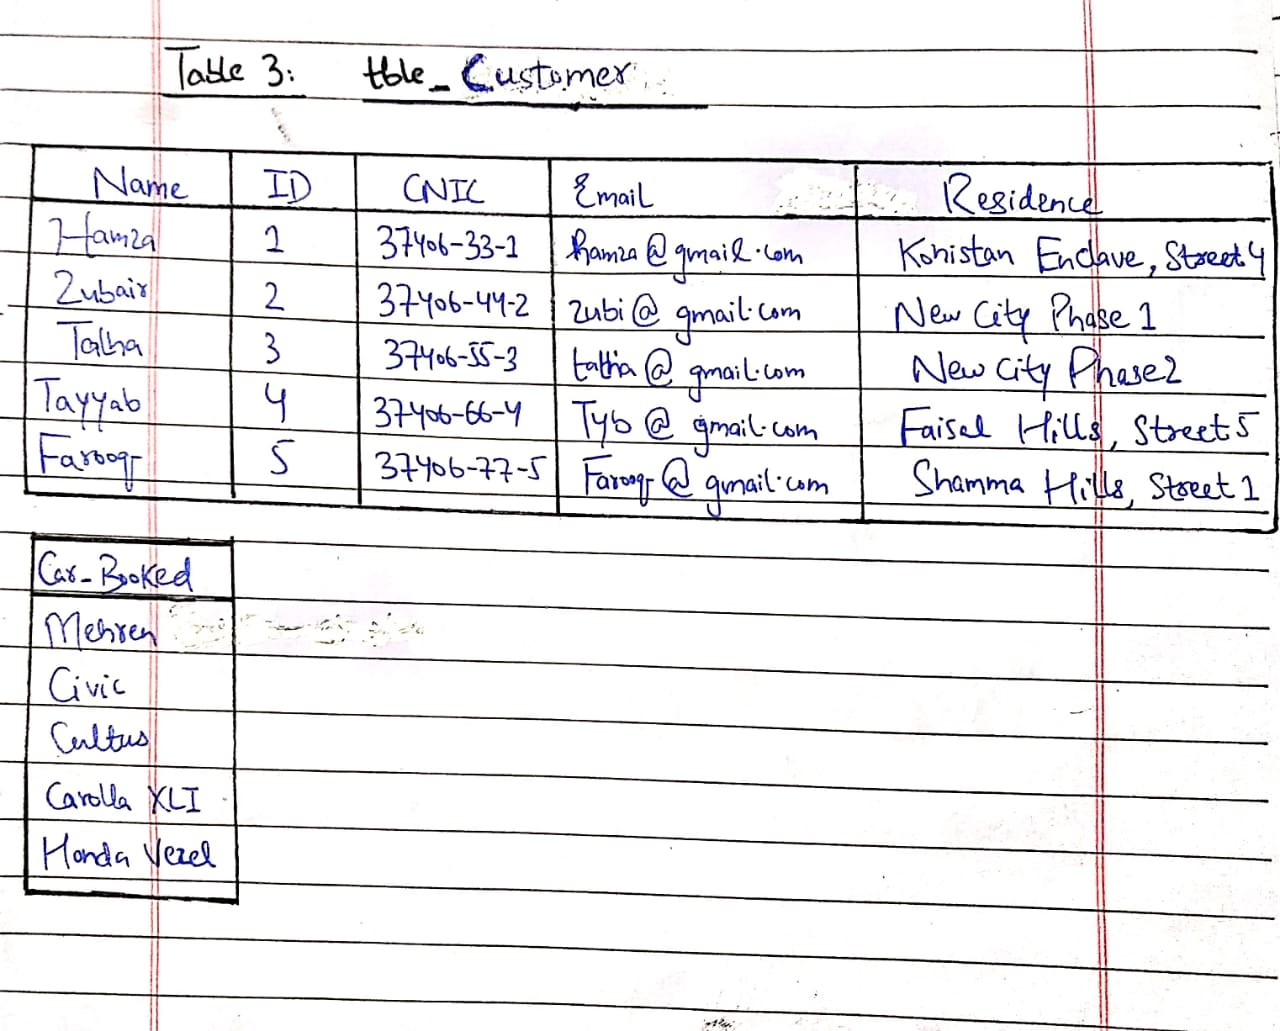 Table 3: tble_Customer
Name ID CNIC Email Residence
Hamza 1 37406-33-1 hamza@gmail.com Kohistan Enclave, Street 4
Zubair 2 37406-44-2 zubi@gmail.com New City Phase 1
Talha 3 37406-55-3 talha@gmail.com New City Phase 2
Tayyab 4 37406-66-4 Tyb@gmail.com Faisal Hills, Street 5
Farooq 5 37406-77-5 Farooq@gmail.com Shamma Hills, Street 1
Car_Booked
Mehren
Civic
Cultus
Carolla XLI
Honda Vezel